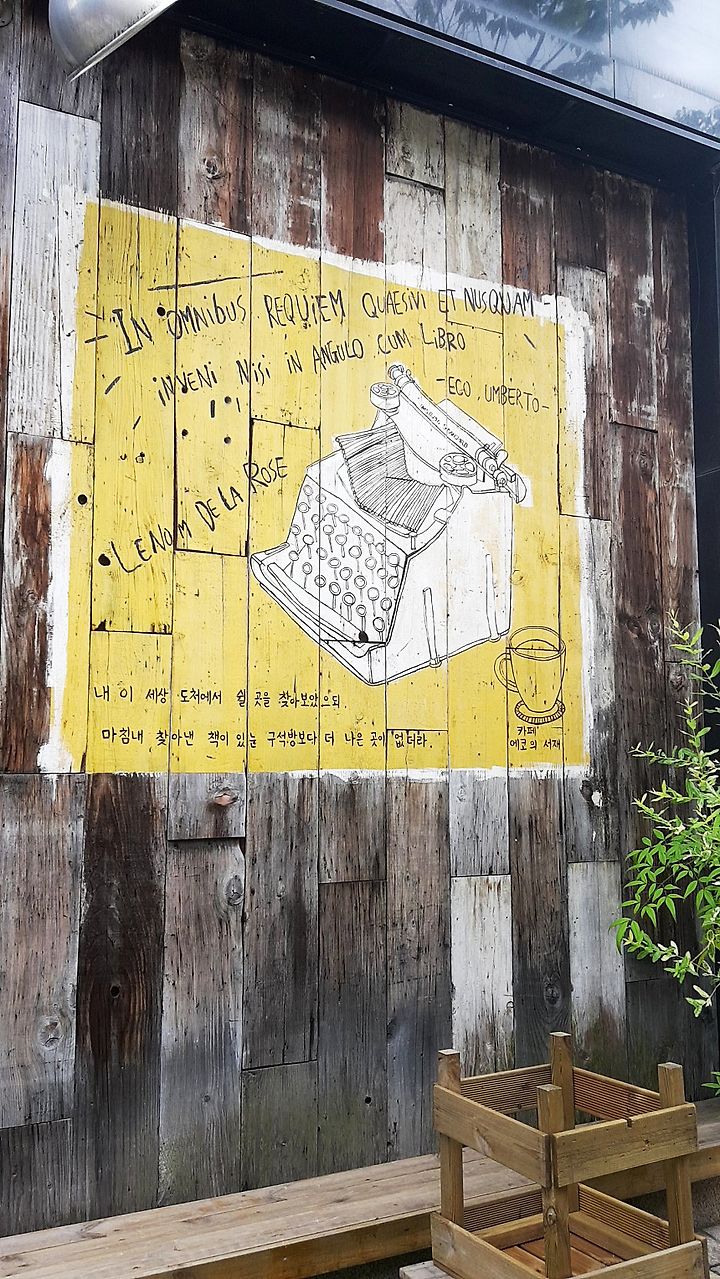 - IN OMNIBUS REQUIEM QUAESIVI ET NUSQUAM -
INVENI NISI IN ANGULO CUM LIBRO
- ECO UMBERTO -
LE NOM DE LA ROSE
내 이 세상 도처에서 쉴 곳을 찾아보았으되.
마침내 찾아낸 책이 있는 구석방보다 더 나은 곳이 없더라.
카페
에코의 서재